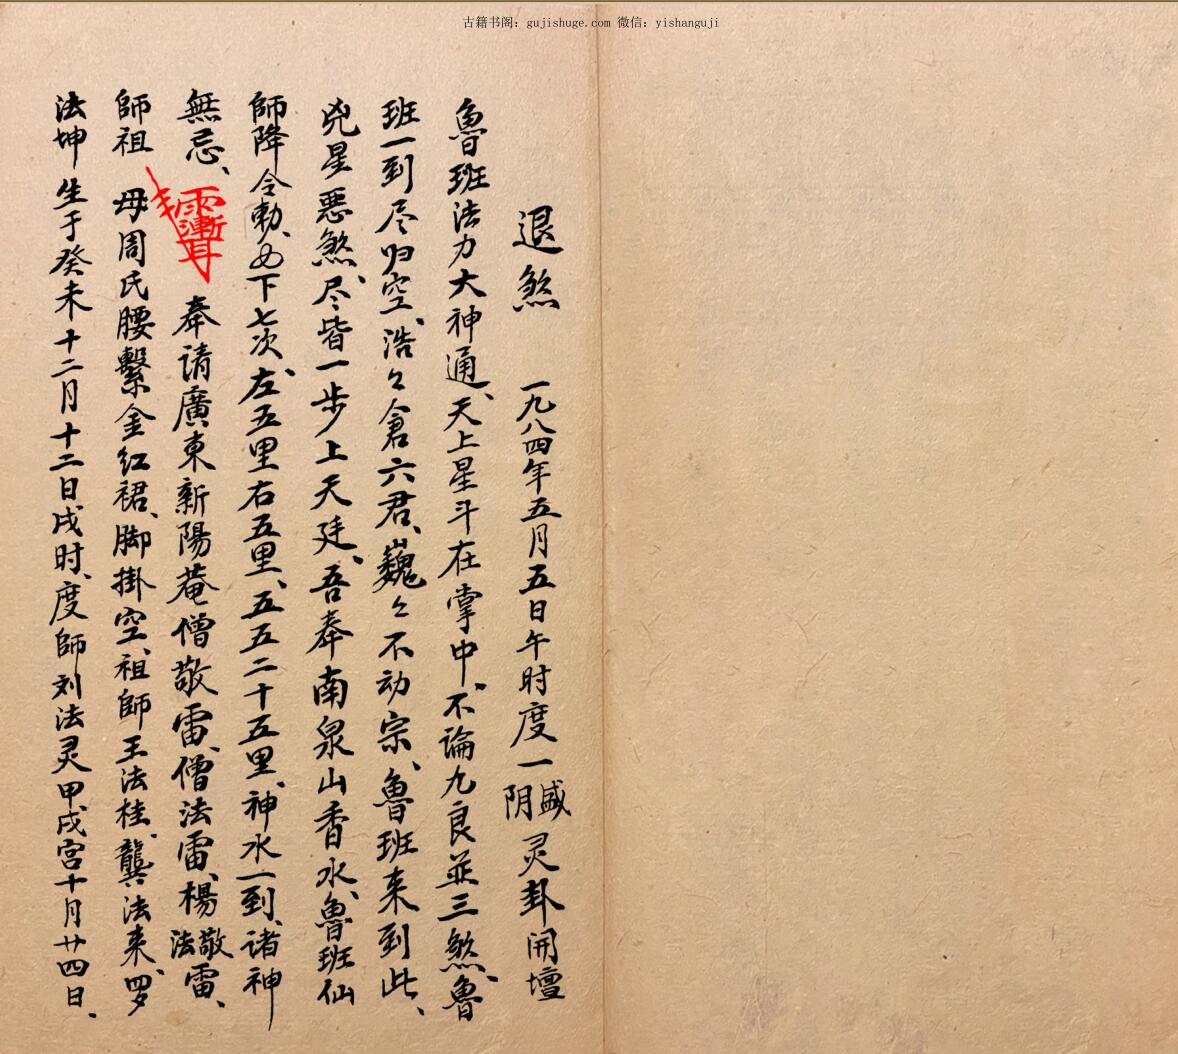 古籍书阁：gujishuge.com 微信：yishanguji
退煞 一九八四年五月五日午时度一盛阴灵卦開壇
魯班法力大神通、天上星斗在掌中、不論九良並三煞、魯
班一到尽归空、浩々倉六君、巍々不动宗、魯班来到此、
兇星悪煞、尽皆一步上天廷、吾奉南泉山香水、魯班仙
師降令勅、女下七次、左五里右五里、五五二十五里、神水一到、诸神
無忌、奉請廣東新陽菴僧敬雷、僧法雷、楊敬法雷、
師祖母周氏腰繫金红裙、脚掛空、祖師王法桂、龔法来、罗
法坤生于癸未十二月十二日戌时、度師刘法灵甲戌宫十月廿四日、